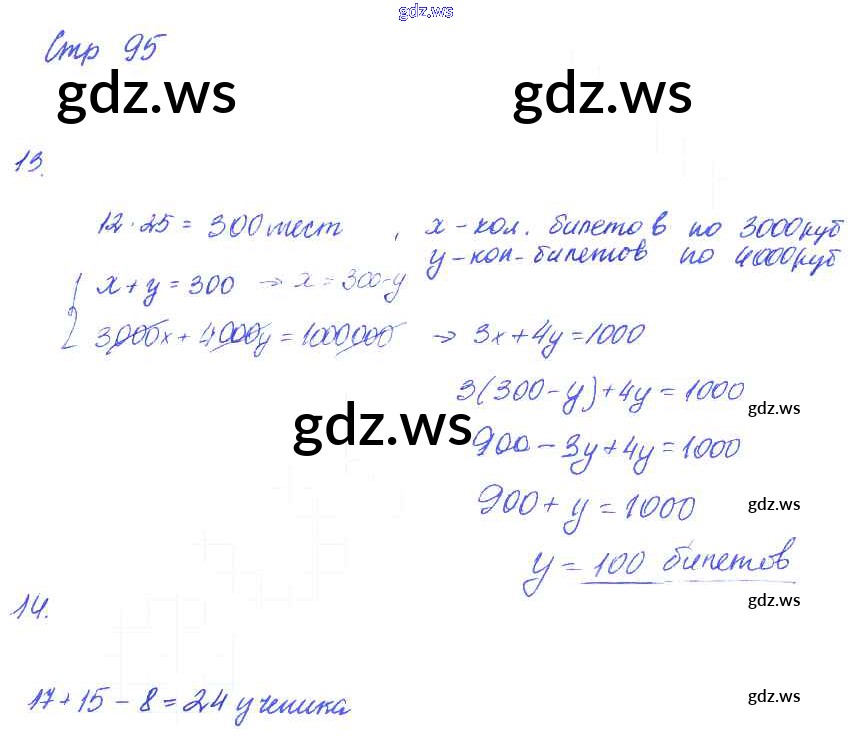 gdz.ws
Стр 95
gdz.ws gdz.ws
13.
12·25 = 300 мест , x - кол. билетов по 3000 руб
y - кол - билетов по 4000 руб
{ x + y = 300 → x = 300 - y
3000x + 4000y = 1000000 → 3x + 4y = 1000
3(300 - y) + 4y = 1000
gdz.ws
gdz.ws
900 - 3y + 4y = 1000
900 + y = 1000
gdz.ws
y = 100 билетов
gdz.ws
14.
17 + 15 - 8 = 24 ученика
gdz.ws